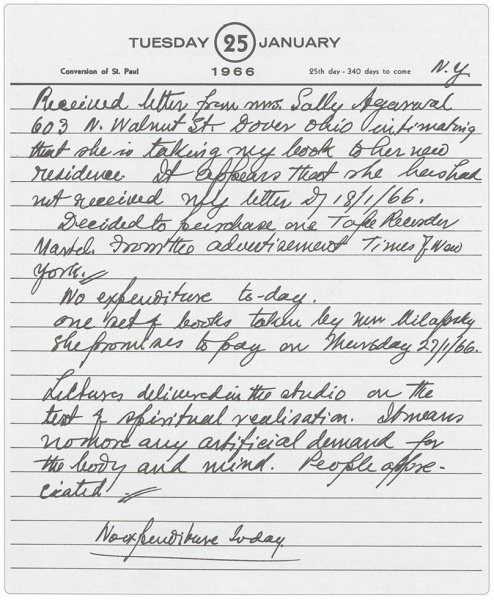 TUESDAY 25 JANUARY
Conversion of St. Paul 1966 25th day - 340 days to come N.Y.
Received letter from mrs. Sally Agarwal
603 N. Walnut St. Dover ohio intimating
that she is taking my book to her new
residence. It appears that she has had
not received my letter of 18/1/66.
Decided to purchase one Tape Recorder
Martel. From the advertisement Times of New
York.
No expenditure to-day.
one set of books taken by
She promises to pay on Thursday 27/1/66.
Lectures delivered in the studio on the
test of spiritual realisation. It means
no more any artificial demand for
the body and mind. People appre-
ciated
No expenditure today